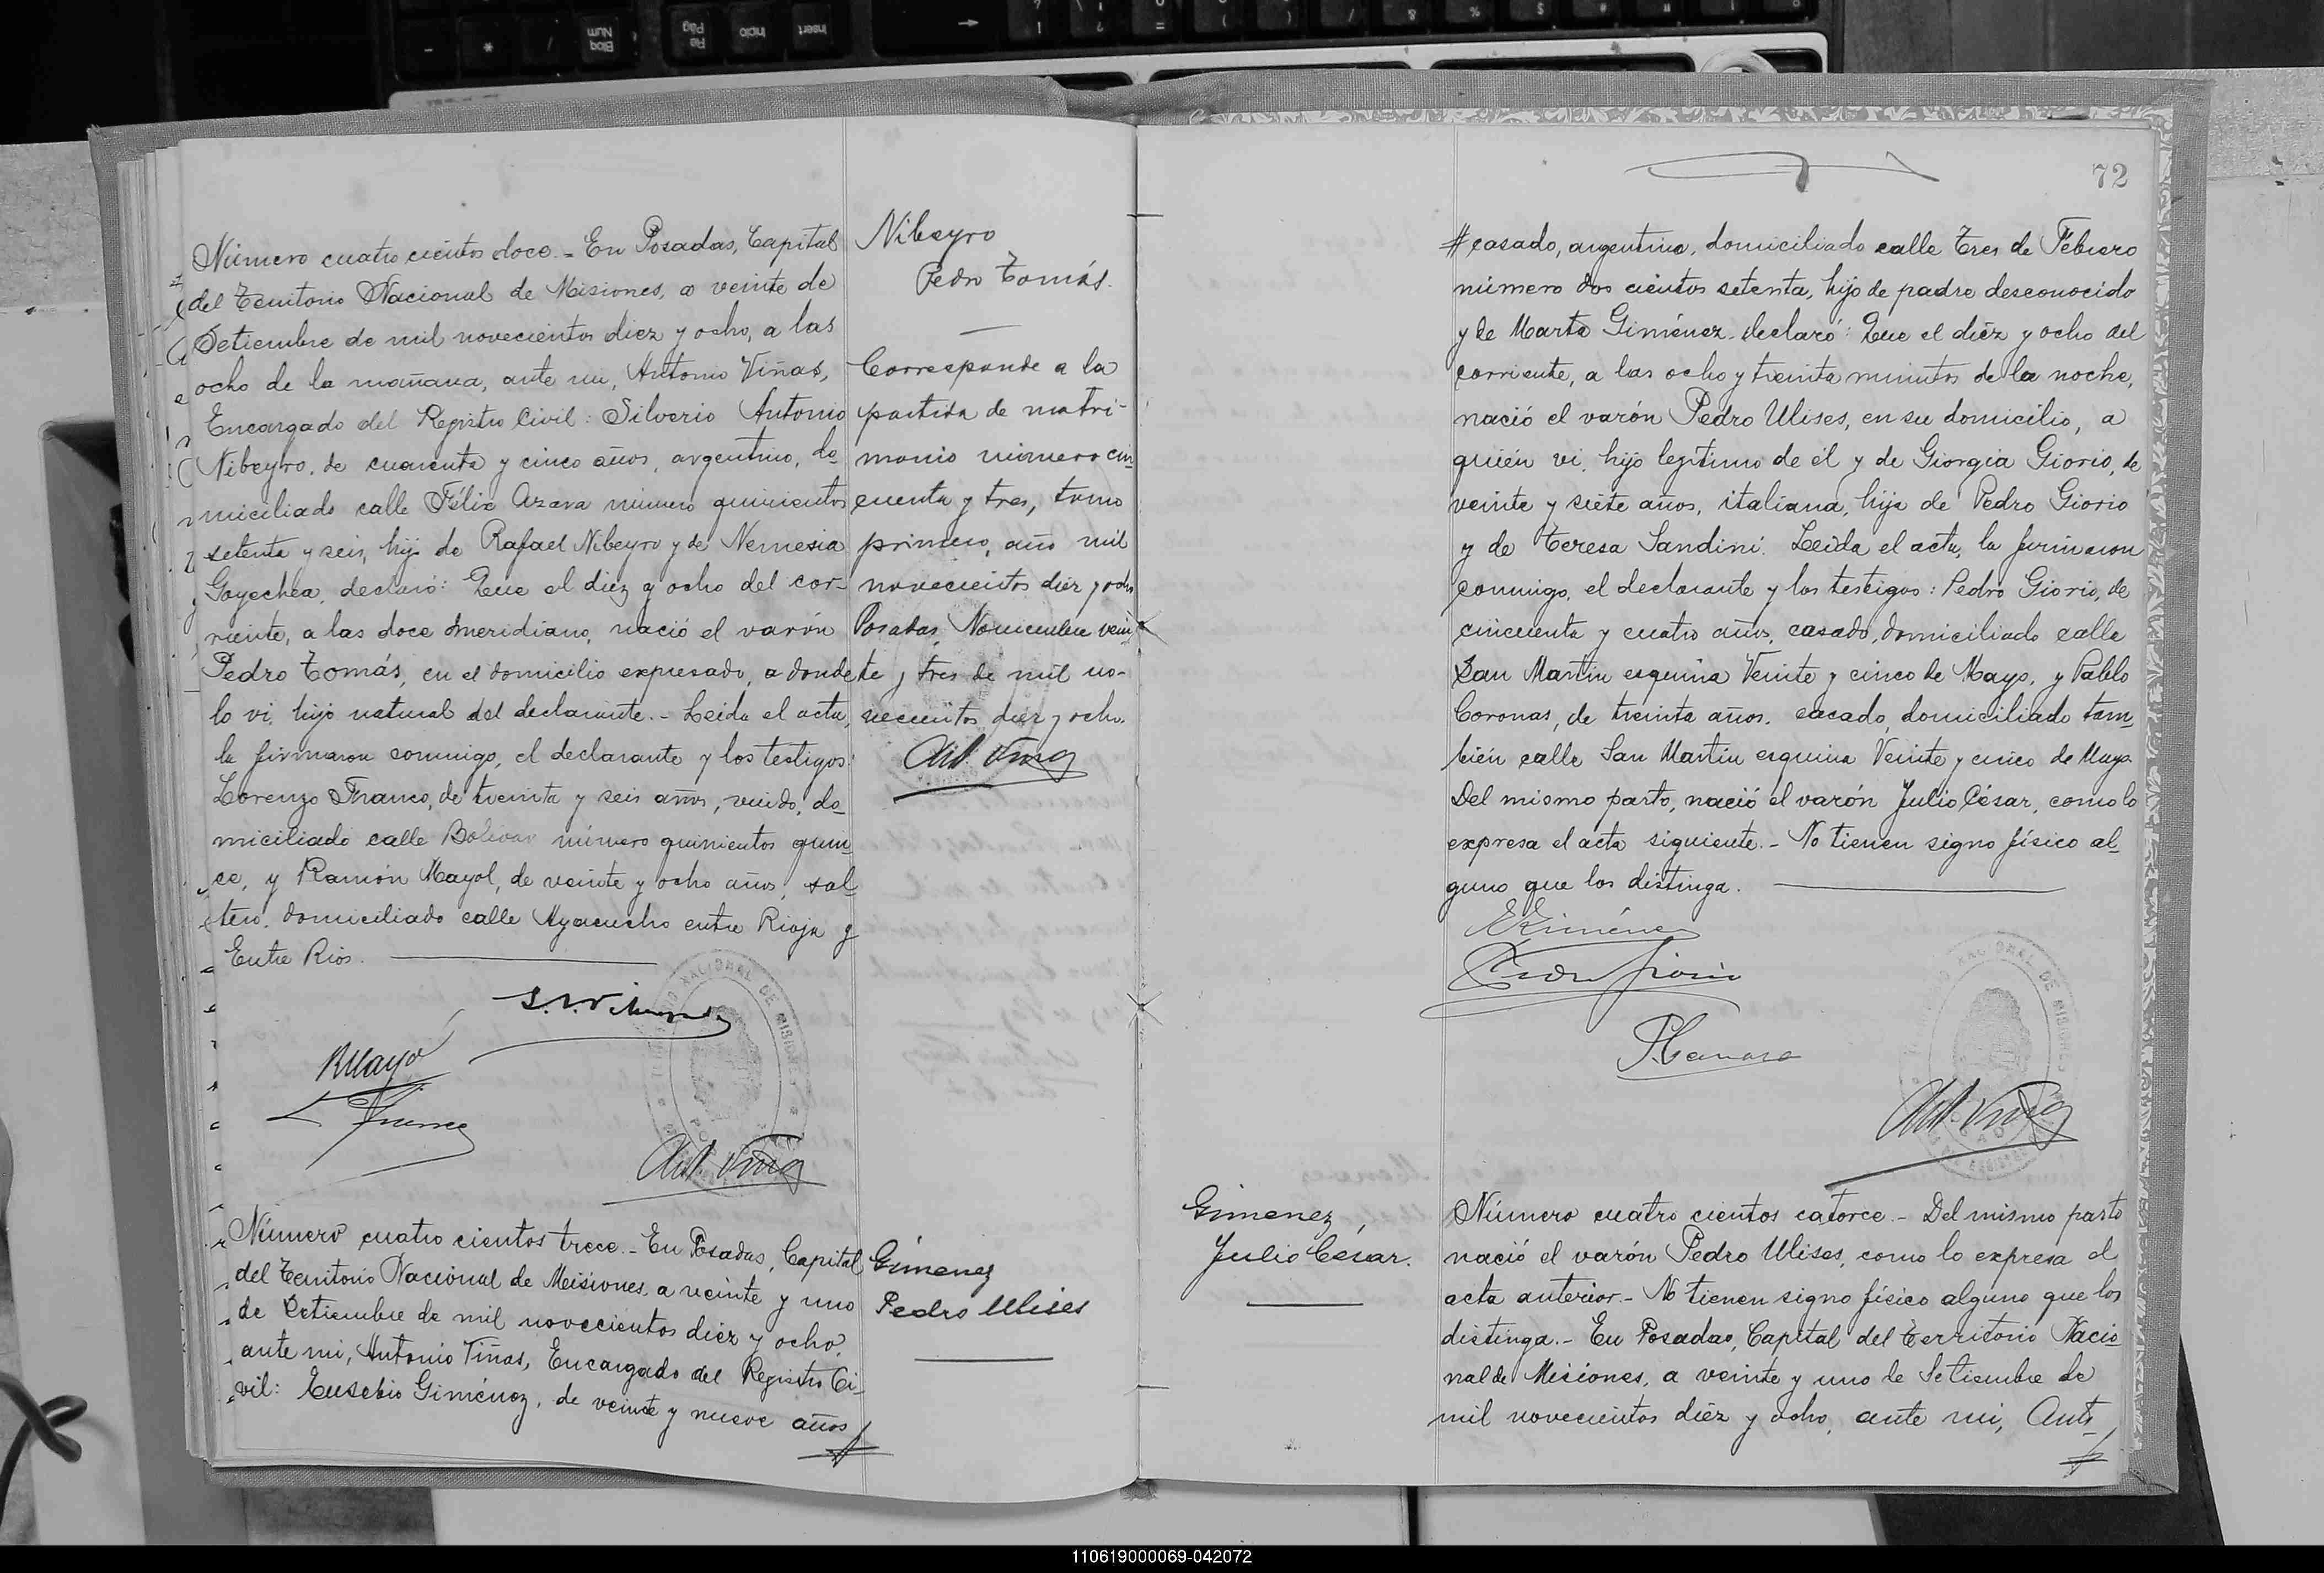 Número cuatro cientos doce.- En Posadas, Capital
del Territorio Nacional de Misiones, a veinte de
Setiembre de mil novecientos diez y ocho, a las
ocho de la mañana, ante mi, Antonio Viñas,
Encargado del Registro Civil: Silverio Antonio
Nibeyro, de cuarenta y cinco años, argentino, do-
miciliado calle Félix Azara número quinientos
setenta y seis, hijo de Rafael Nibeyro y de Nemesia
Goyechea, declaró: Que el diez y ocho del cor-
riente, a las doce meridiano, nació el varón
Pedro Tomás, en el domicilio expresado, a donde
lo vi, hijo natural del declarante.- Leida el acta,
la firmaron conmigo, el declarante y los testigos:
Lorenzo Franco, de treinta y seis años, viudo, do-
miciliado calle Bolivar número quinientos quin-
ce, y Ramón Mayol, de veinte y ocho años, sol-
tero, domiciliado calle Ayacucho entre Rioja y
Entre Rios.
Nibeyro
Pedro Tomás.
Corresponde a la
partida de matri-
monio número cin-
cuenta y tres, tomo
primero, año mil
novecientos diez y ocho
Posadas, Noviembre vein-
te y tres de mil no-
vecientos diez y ocho.
Ant. Viñas
RMayol
L. Franco
Ant. Viñas
Número cuatro cientos trece.- En Posadas, Capital
del Territorio Nacional de Misiones, a veinte y uno
de Setiembre de mil novecientos diez y ocho,
ante mi, Antonio Viñas, Encargado del Registro Ci-
vil: Eusebio Giménez, de veinte y nueve años
#
Gimenez
Pedro Ulises
72
# casado, argentino, domiciliado calle Tres de Febrero
número dos cientos setenta, hijo de padre desconocido
y de Marta Giménez, declaró: Que el diéz y ocho del
corriente, a las ocho y treinta minutos de la noche,
nació el varón Pedro Ulises, en su domicilio, a
quién vi, hijo legítimo de él y de Giorgia Giorio, de
veinte y siete años, italiana, hija de Pedro Giorio
y de Teresa Sandini. Leida el acta, la firmaron
conmigo, el declarante y los testigos: Pedro Giorio, de
cincuenta y cuatro años, casado, domiciliado calle
San Martin esquina Veinte y cinco de Mayo, y Pablo
Coronas, de treinta años, casado, domiciliado tam-
bién calle San Martin esquina Veinte y cinco de Mayo
Del mismo parto, nació el varón Julio César, como lo
expresa el acta siguiente.- No tienen signo físico al-
guno que los distinga.
EGiménez
Pedro Giorio
Ant. Viñas
Gimenez,
Julio César.
Número cuatro cientos catorce.- Del mismo parto
nació el varón Pedro Ulises, como lo expresa el
acta anterior.- No tienen signo físico alguno que los
distinga.- En Posadas, Capital del Territorio Nacio-
nal de Misiones, a veinte y uno de Setiembre de
mil novecientos diéz y ocho, ante mi, Anto-
#
110619000069-042072